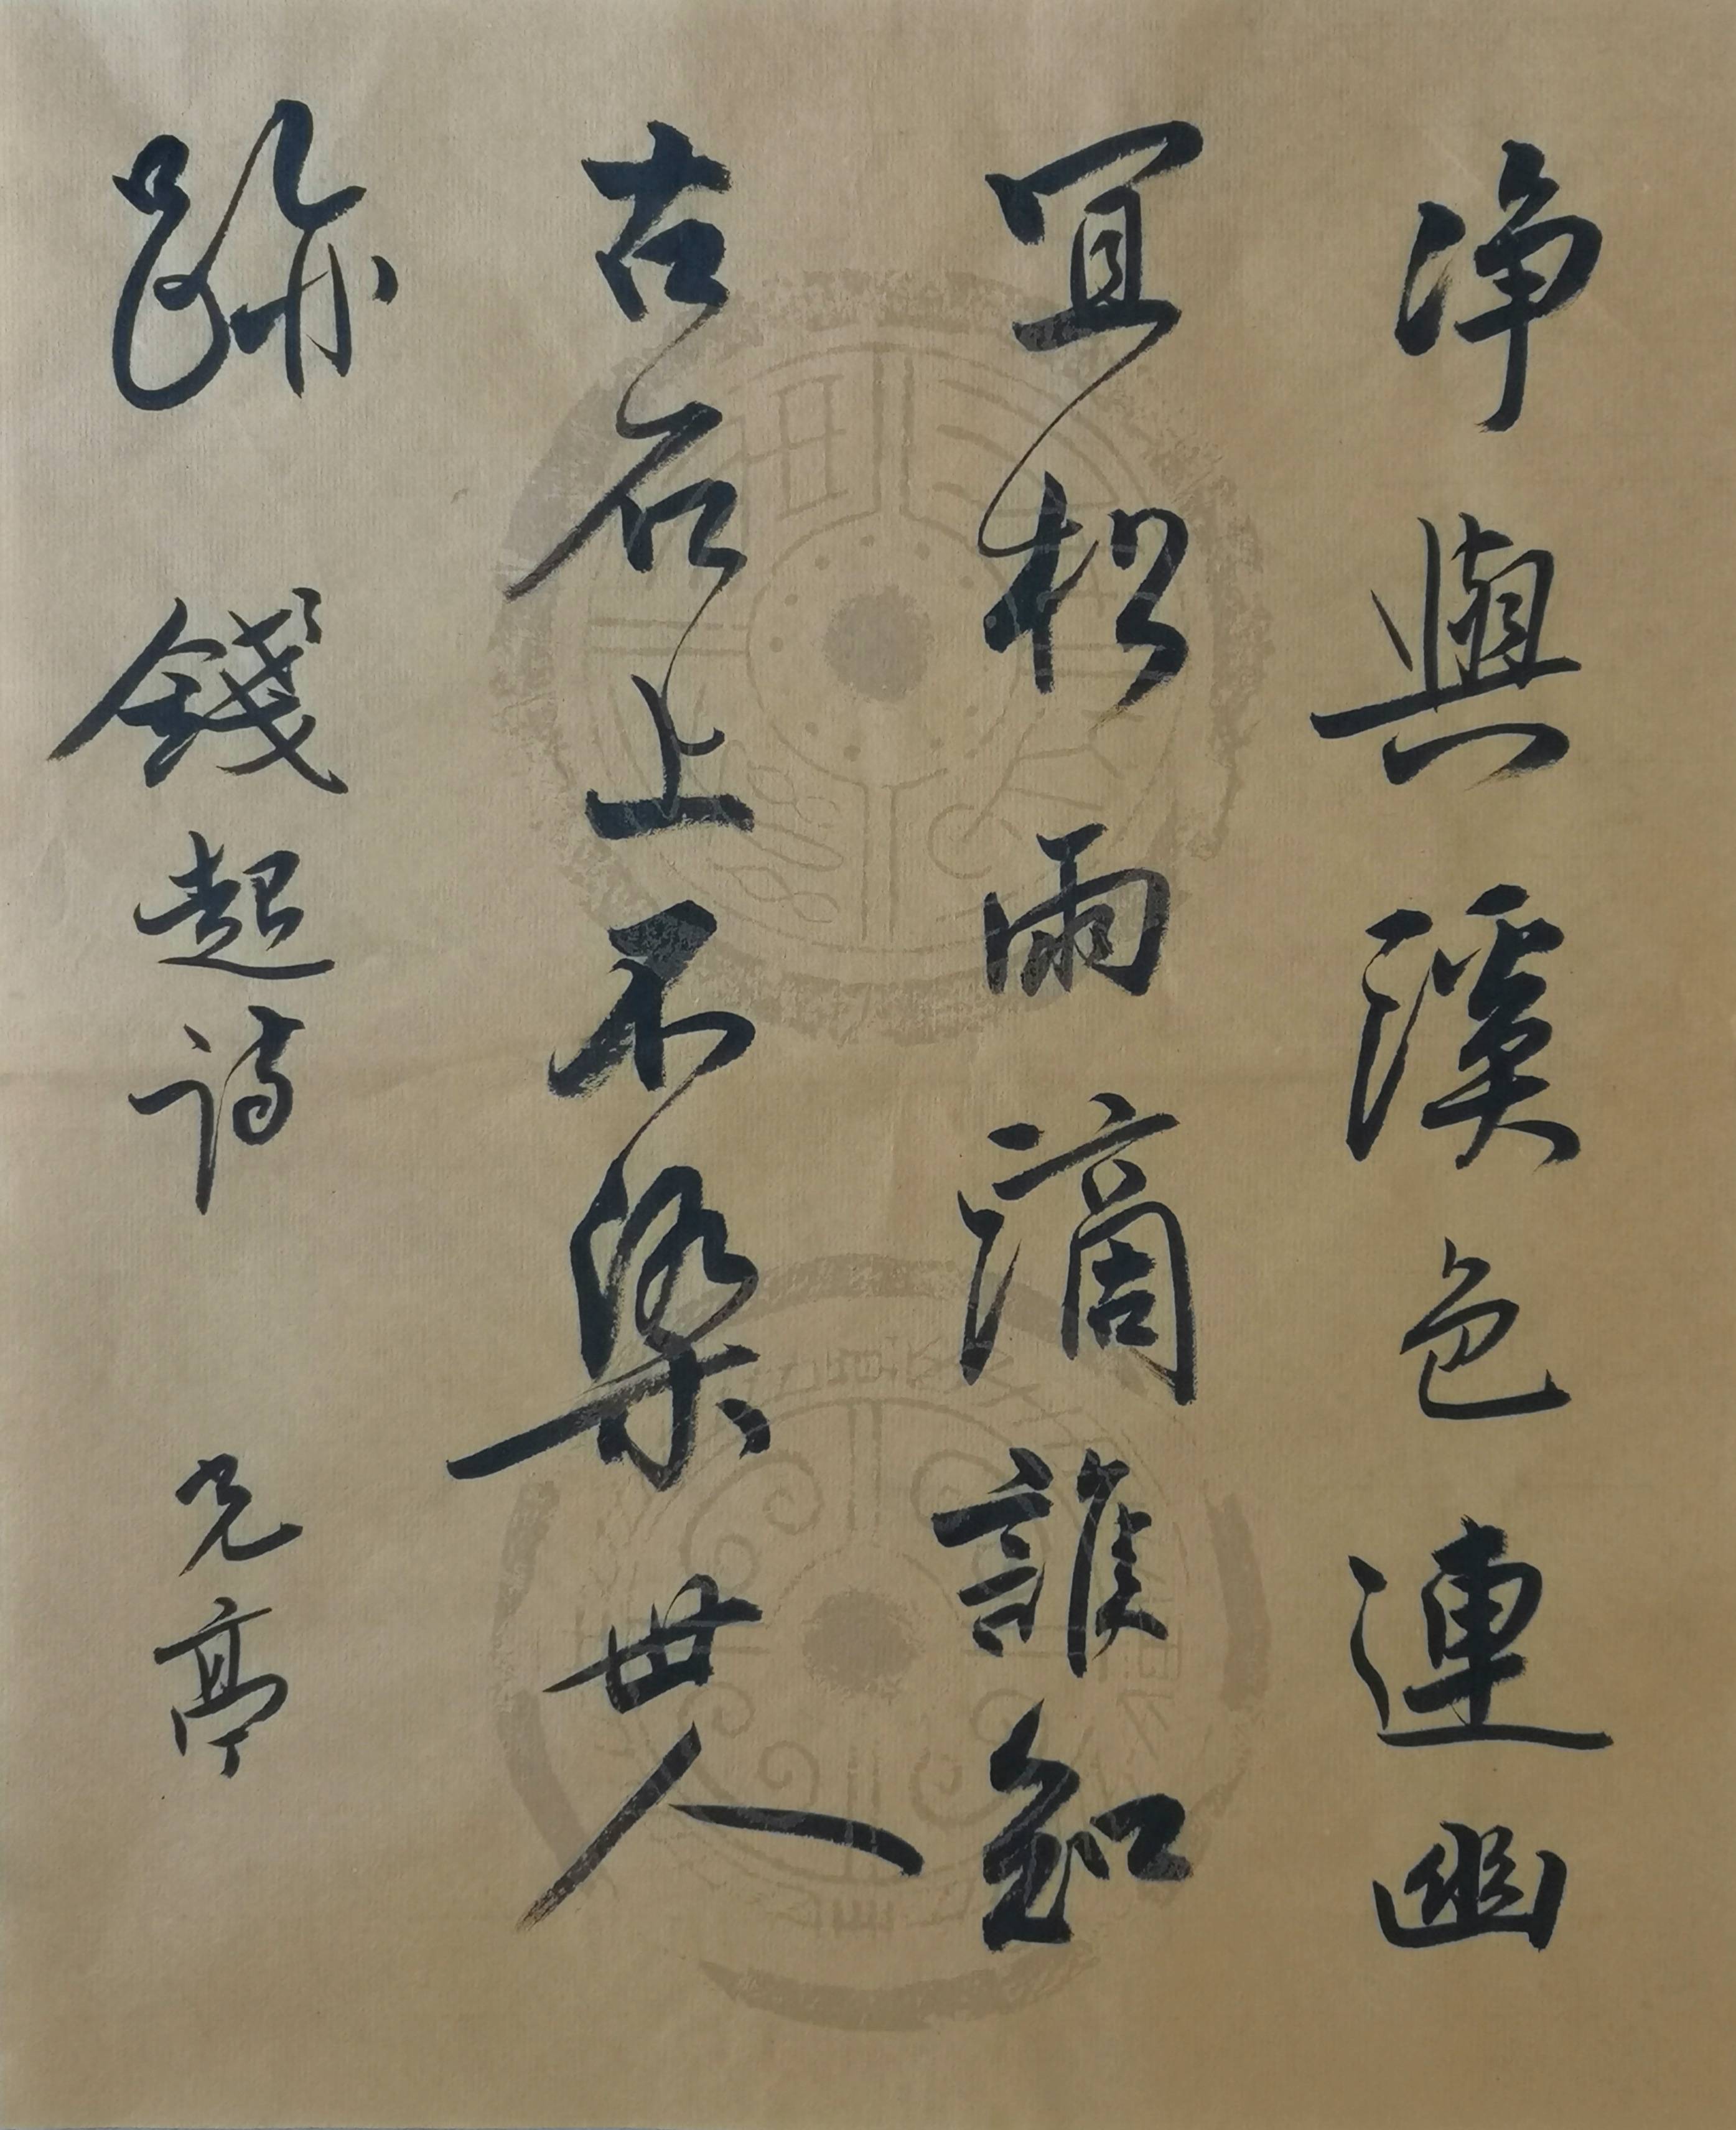 淨與溪色連幽
宜松雨滴誰知
古石上不染世人
跡 錢起詩 元亭